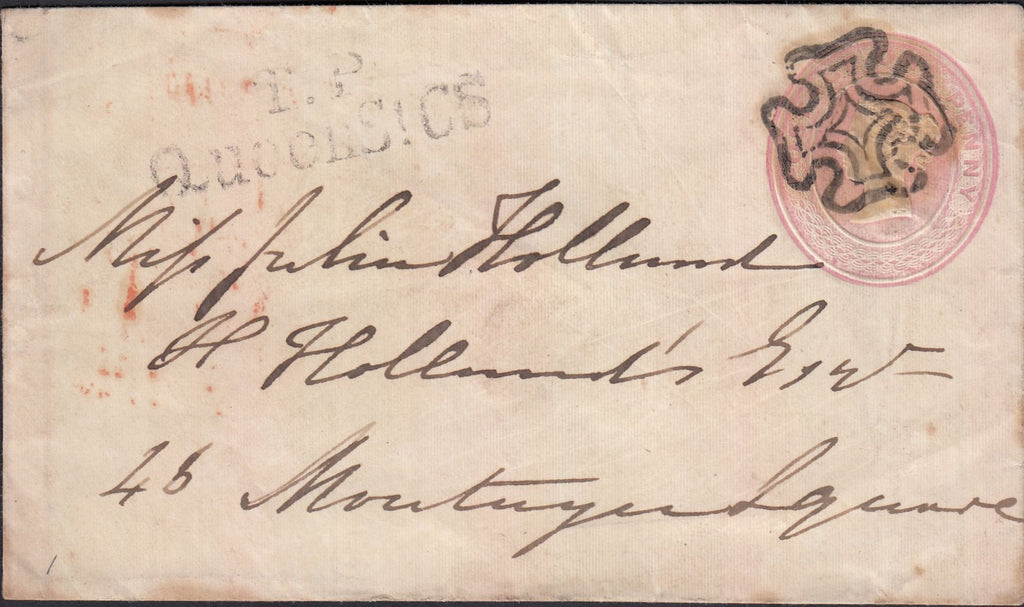 T.P
Queen St CS
PENNY
Miss Julia Holland
H Holland's Esqr
48 Montague Square